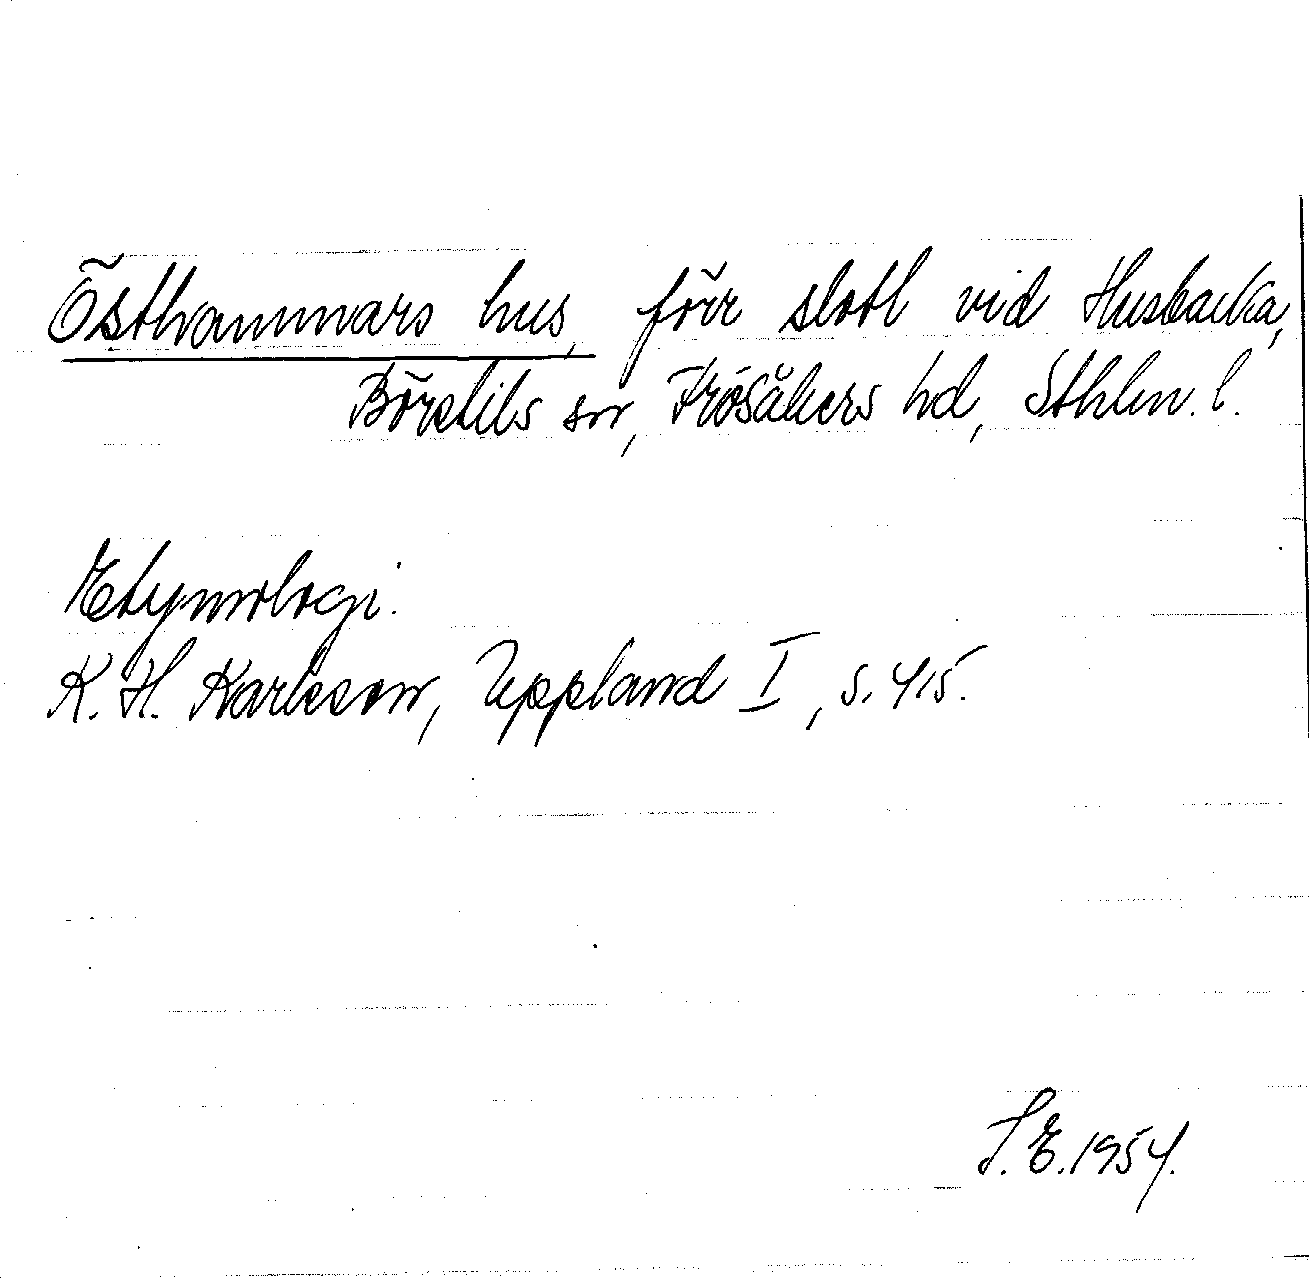 Östhammars hus, förr slott vid Husbacka,
Börstils sn, Frösåkers hd, Sthlm. l.
Etymologi.
K. H. Karlsson, Uppland I, s. 415.
S. E. 1954.